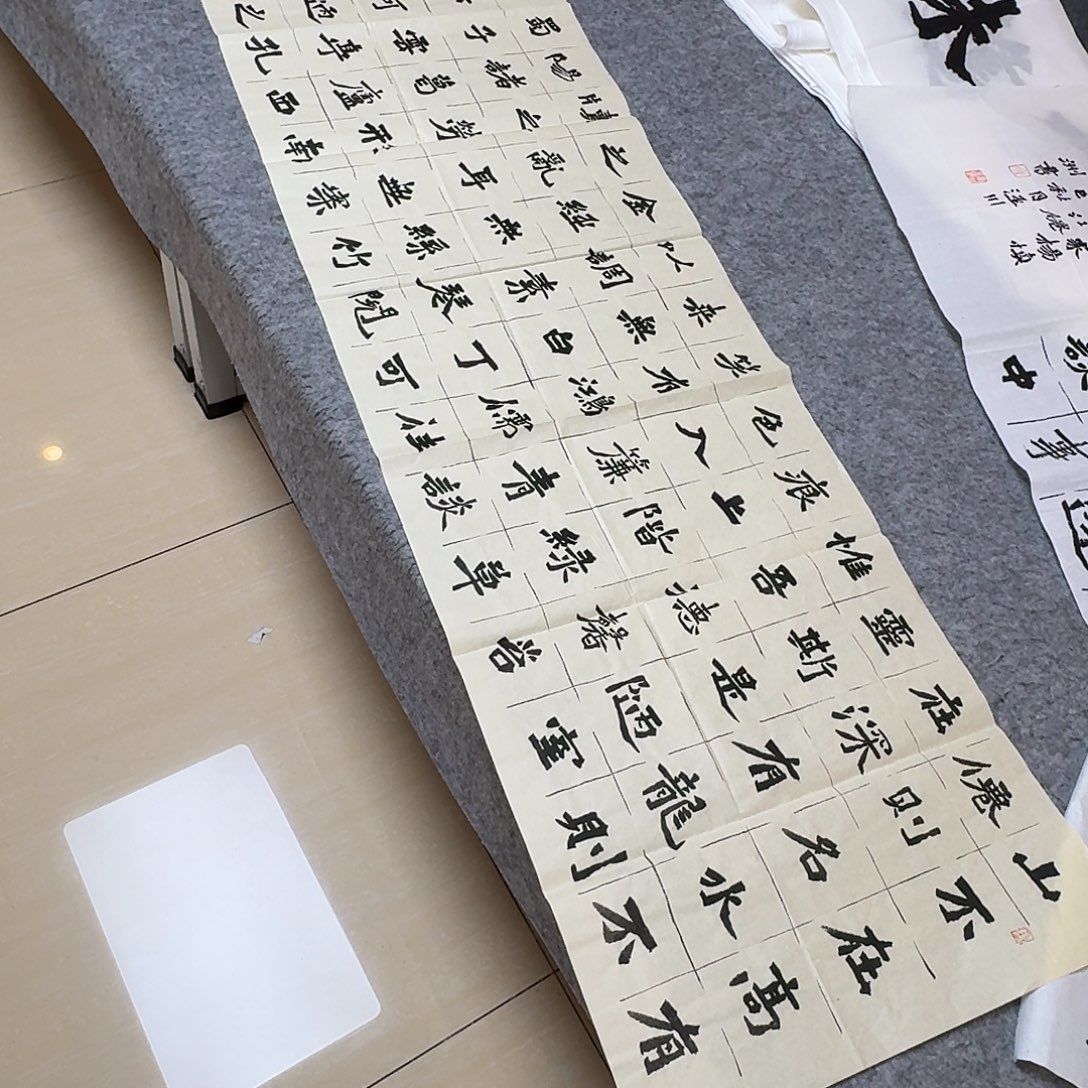 山不在高有
僊則名水不
在深有龍則
靈斯是陋室
惟吾德馨苔
痕上階綠草
色入簾青談
笑有鴻儒往
來無白丁可
以調素琴閱
金經無絲竹
之亂耳無案
牘之勞形南
陽諸葛廬西
蜀子雲亭孔
之
中
事